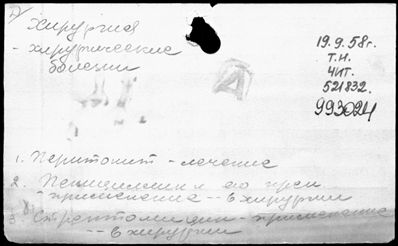 Хирургия
- хирургические
болезни
19.9.58г.
Т.Н.
ЧИТ.
521832.
993024
1. Перитонит - лечение
2. Пенициллин и его
применение -- в хирургии
3 Стрептомицин - применение
-- в хирургии